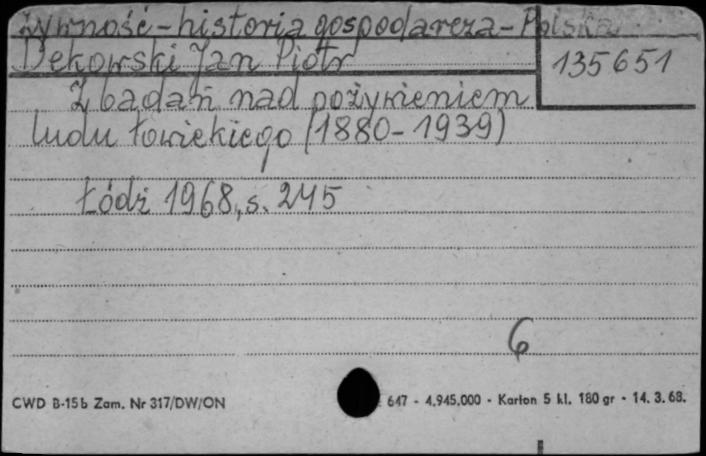 Żywność - historia gospodarcza - Polska
Dekowski Jan Piotr
135651
Z badań nad pożywieniem
ludu łowickiego (1880-1939)
Łódź 1968, s. 245
6
CWD B-15b Zam. Nr 317/DW/ON
647 - 4.945.000 - Karton 5 kl. 180 gr - 14. 3. 68.